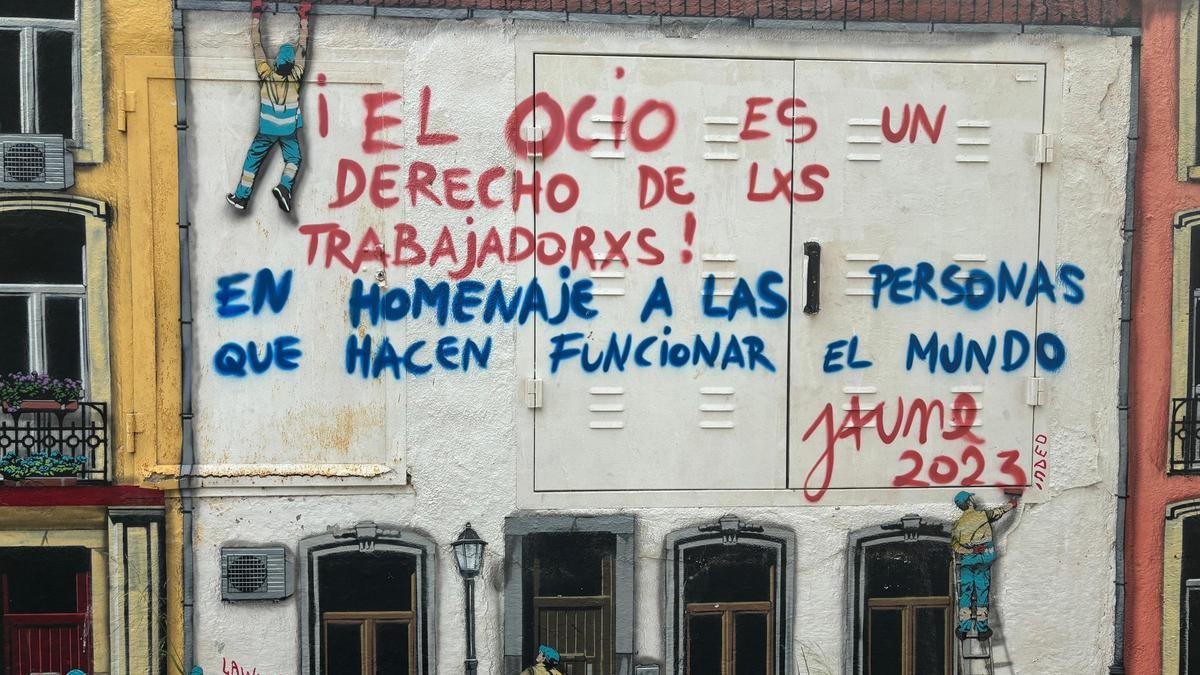 ¡EL OCIO ES UN
DERECHO DE LXS
TRABAJADORXS!
EN HOMENAJE A LAS PERSONAS
QUE HACEN FUNCIONAR EL MUNDO
JAUME
2023